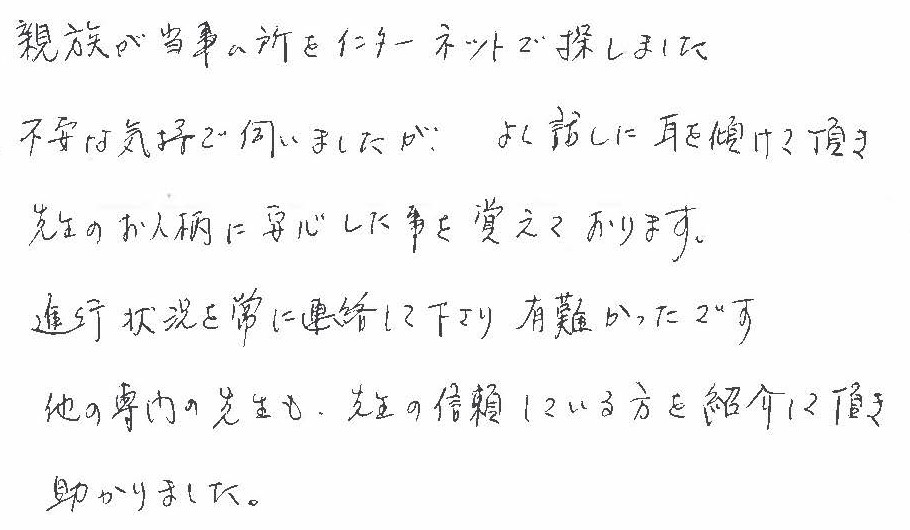 親族が当事ム所をインターネットで探しました
不安な気持で伺いましたが、よく話しに耳を傾けて頂き
先生のお人柄に安心した事を覚えております。
進行状況を常に連絡して下さり有難かったです
他の専門の先生も、先生の信頼している方を紹介して頂き
助かりました。